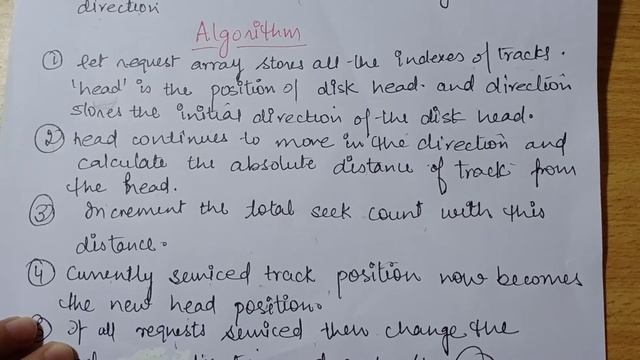 direction
Algorithm
① let request array stores all the indexes of tracks.
'head' is the position of disk head. and direction
stores the initial direction of the disk head.
② head continues to move in the direction and
calculate the absolute distance of track from
the head.
③ Increment the total seek count with this
distance.
④ Currently serviced track position now becomes
the new head position.
If all requests serviced then change the